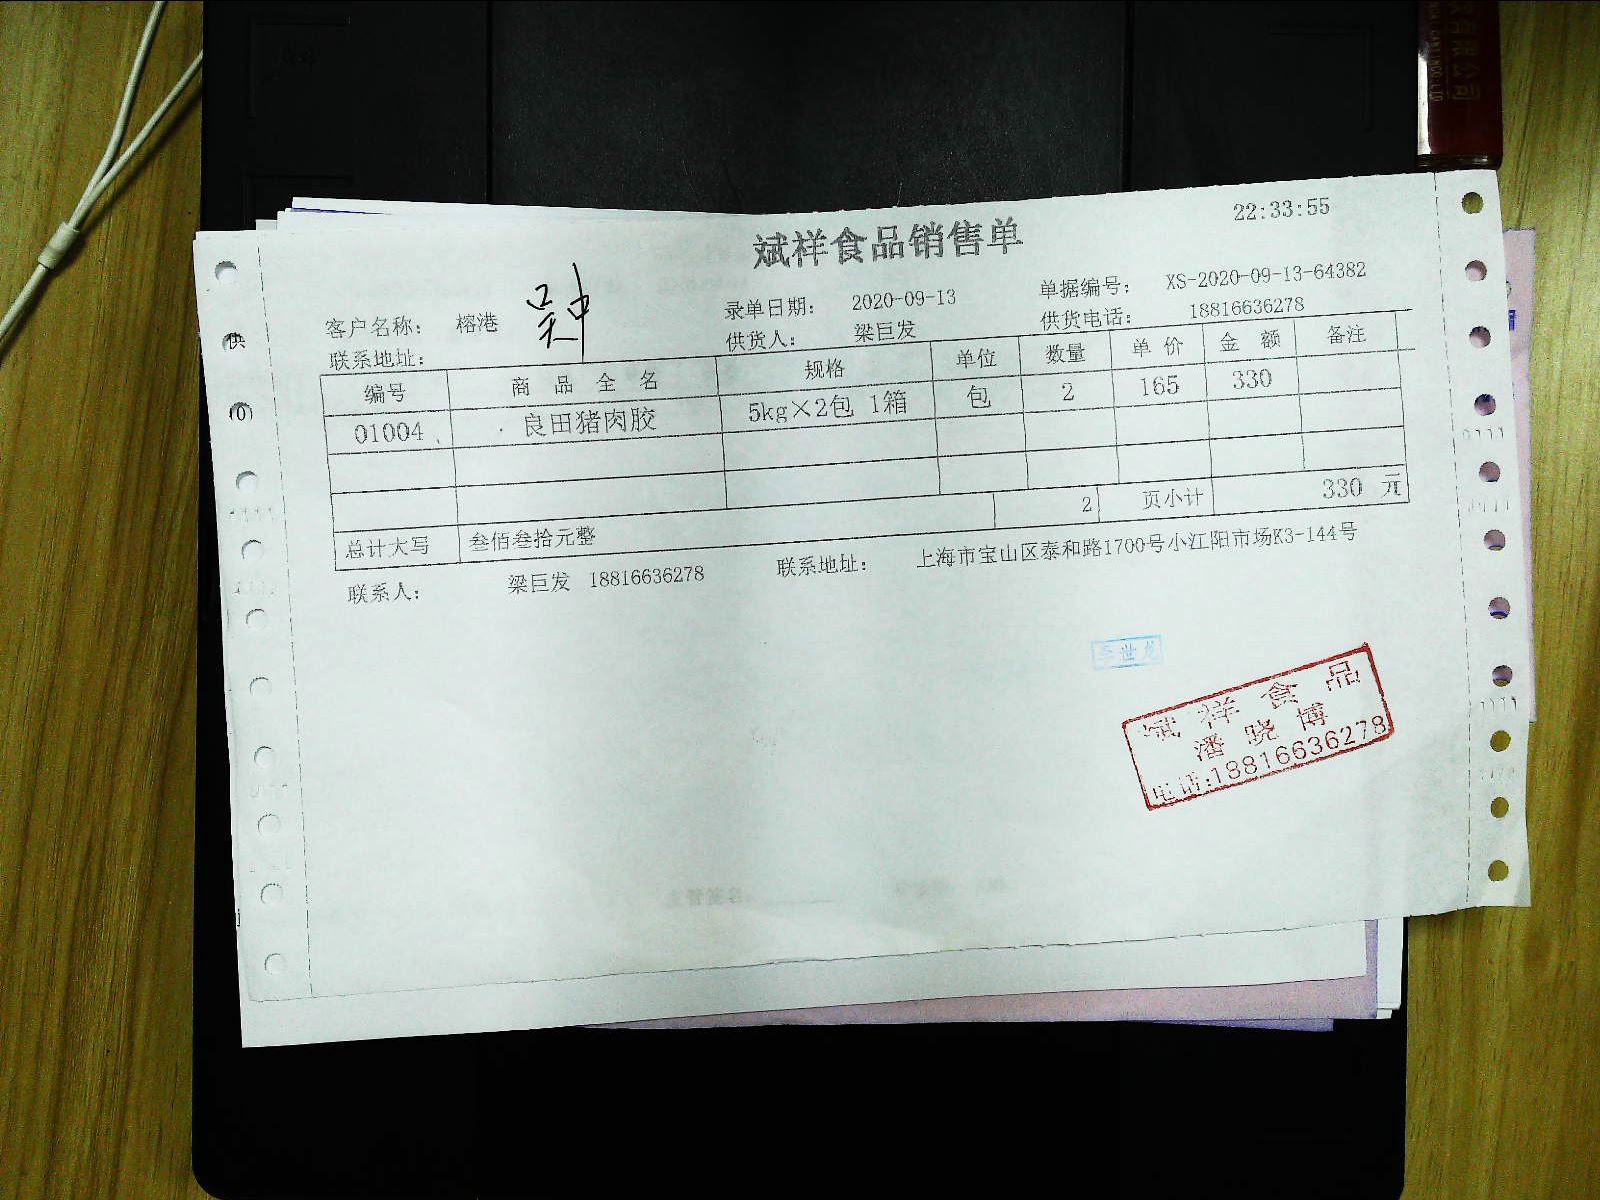 22:33:55
斌祥食品销售单
客户名称： 榕港 吴中 录单日期： 2020-09-13 单据编号： XS-2020-09-13-64382
联系地址： 供货人： 梁巨发 供货电话： 18816636278
编号 商品全名 规格 单位 数量 单价 金额 备注
01004 良田猪肉胶 5kg×2包 1箱 包 2 165 330
2 页小计 330 元
总计大写 叁佰叁拾元整
联系人： 梁巨发 18816636278 联系地址： 上海市宝山区泰和路1700号小江阳市场K3-144号
李世龙
斌祥食品
潘晓博
电话:18816636278